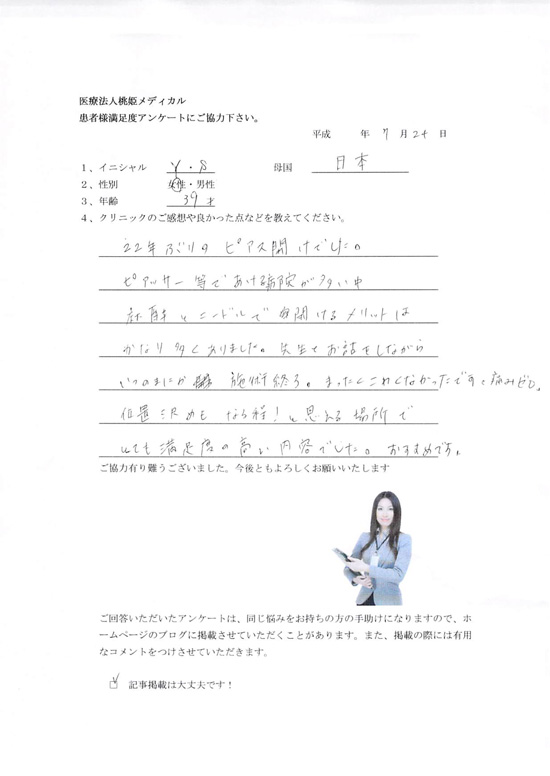 医療法人桃姫メディカル
患者様満足度アンケートにご協力下さい。
平成 年 7 月 24 日
1、イニシャル Y・S 母国 日本
2、性別 女性・男性
3、年齢 39才
4、クリニックのご感想や良かった点などを教えてください。
22年ぶりのピアス開けでした。
ピアッサー等であける病院が多い中
麻酔とニードルで開けるメリットは
かなり多くありました。先生とお話をしながら
いつのまにか 施術終了。まったくこわくなかったですし痛みゼロ。
位置決めもなる程!と思える場所で
とても満足度の高い内容でした。おすすめです。
ご協力有り難うございました。今後ともよろしくお願いいたします
ご回答いただいたアンケートは、同じ悩みをお持ちの方の手助けになりますので、ホ
ームページのブログに掲載させていただくことがあります。また、掲載の際には有用
なコメントをつけさせていただきます。
記事掲載は大丈夫です!